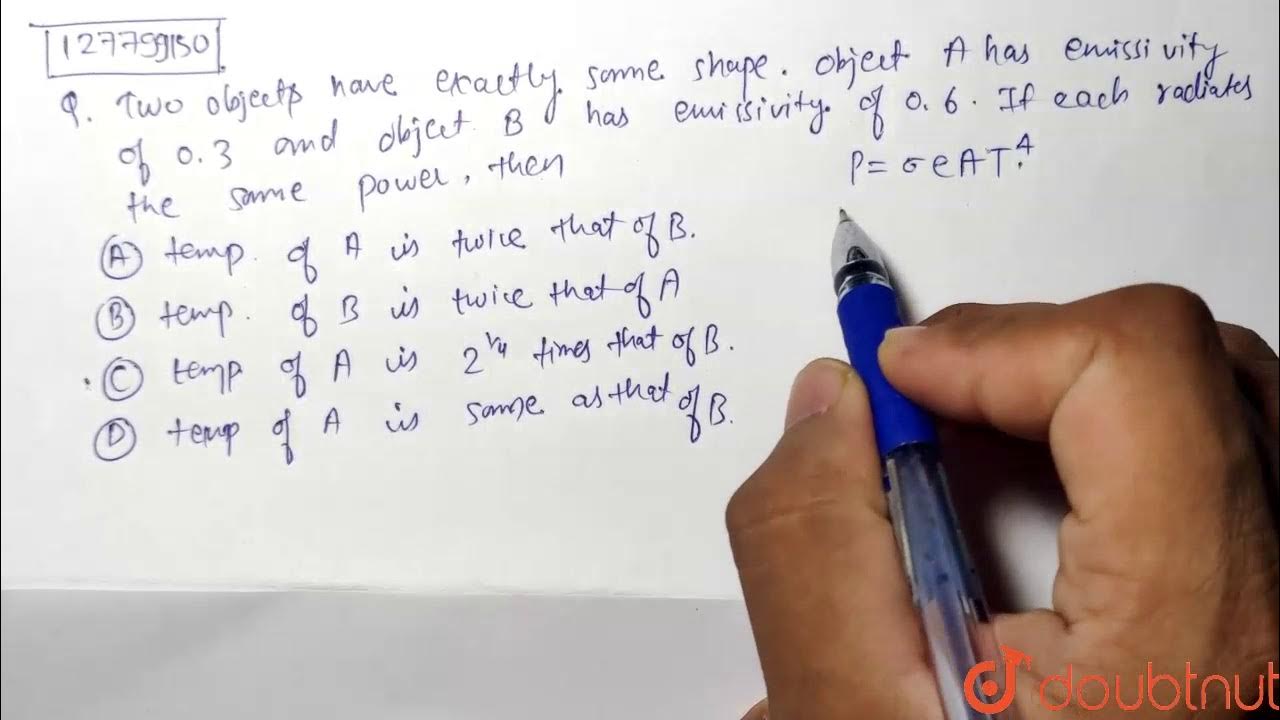 127799150
Q. Two objects have exactly same shape. Object A has emissivity
of 0.3 and object B has emissivity of 0.6. If each radiates
the same power, then
P = σeAT⁴
Ⓐ temp. of A is twice that of B.
Ⓑ temp. of B is twice that of A
Ⓒ temp of A is 2^1/4 times that of B.
Ⓓ temp of A is same as that of B.
doubtnut